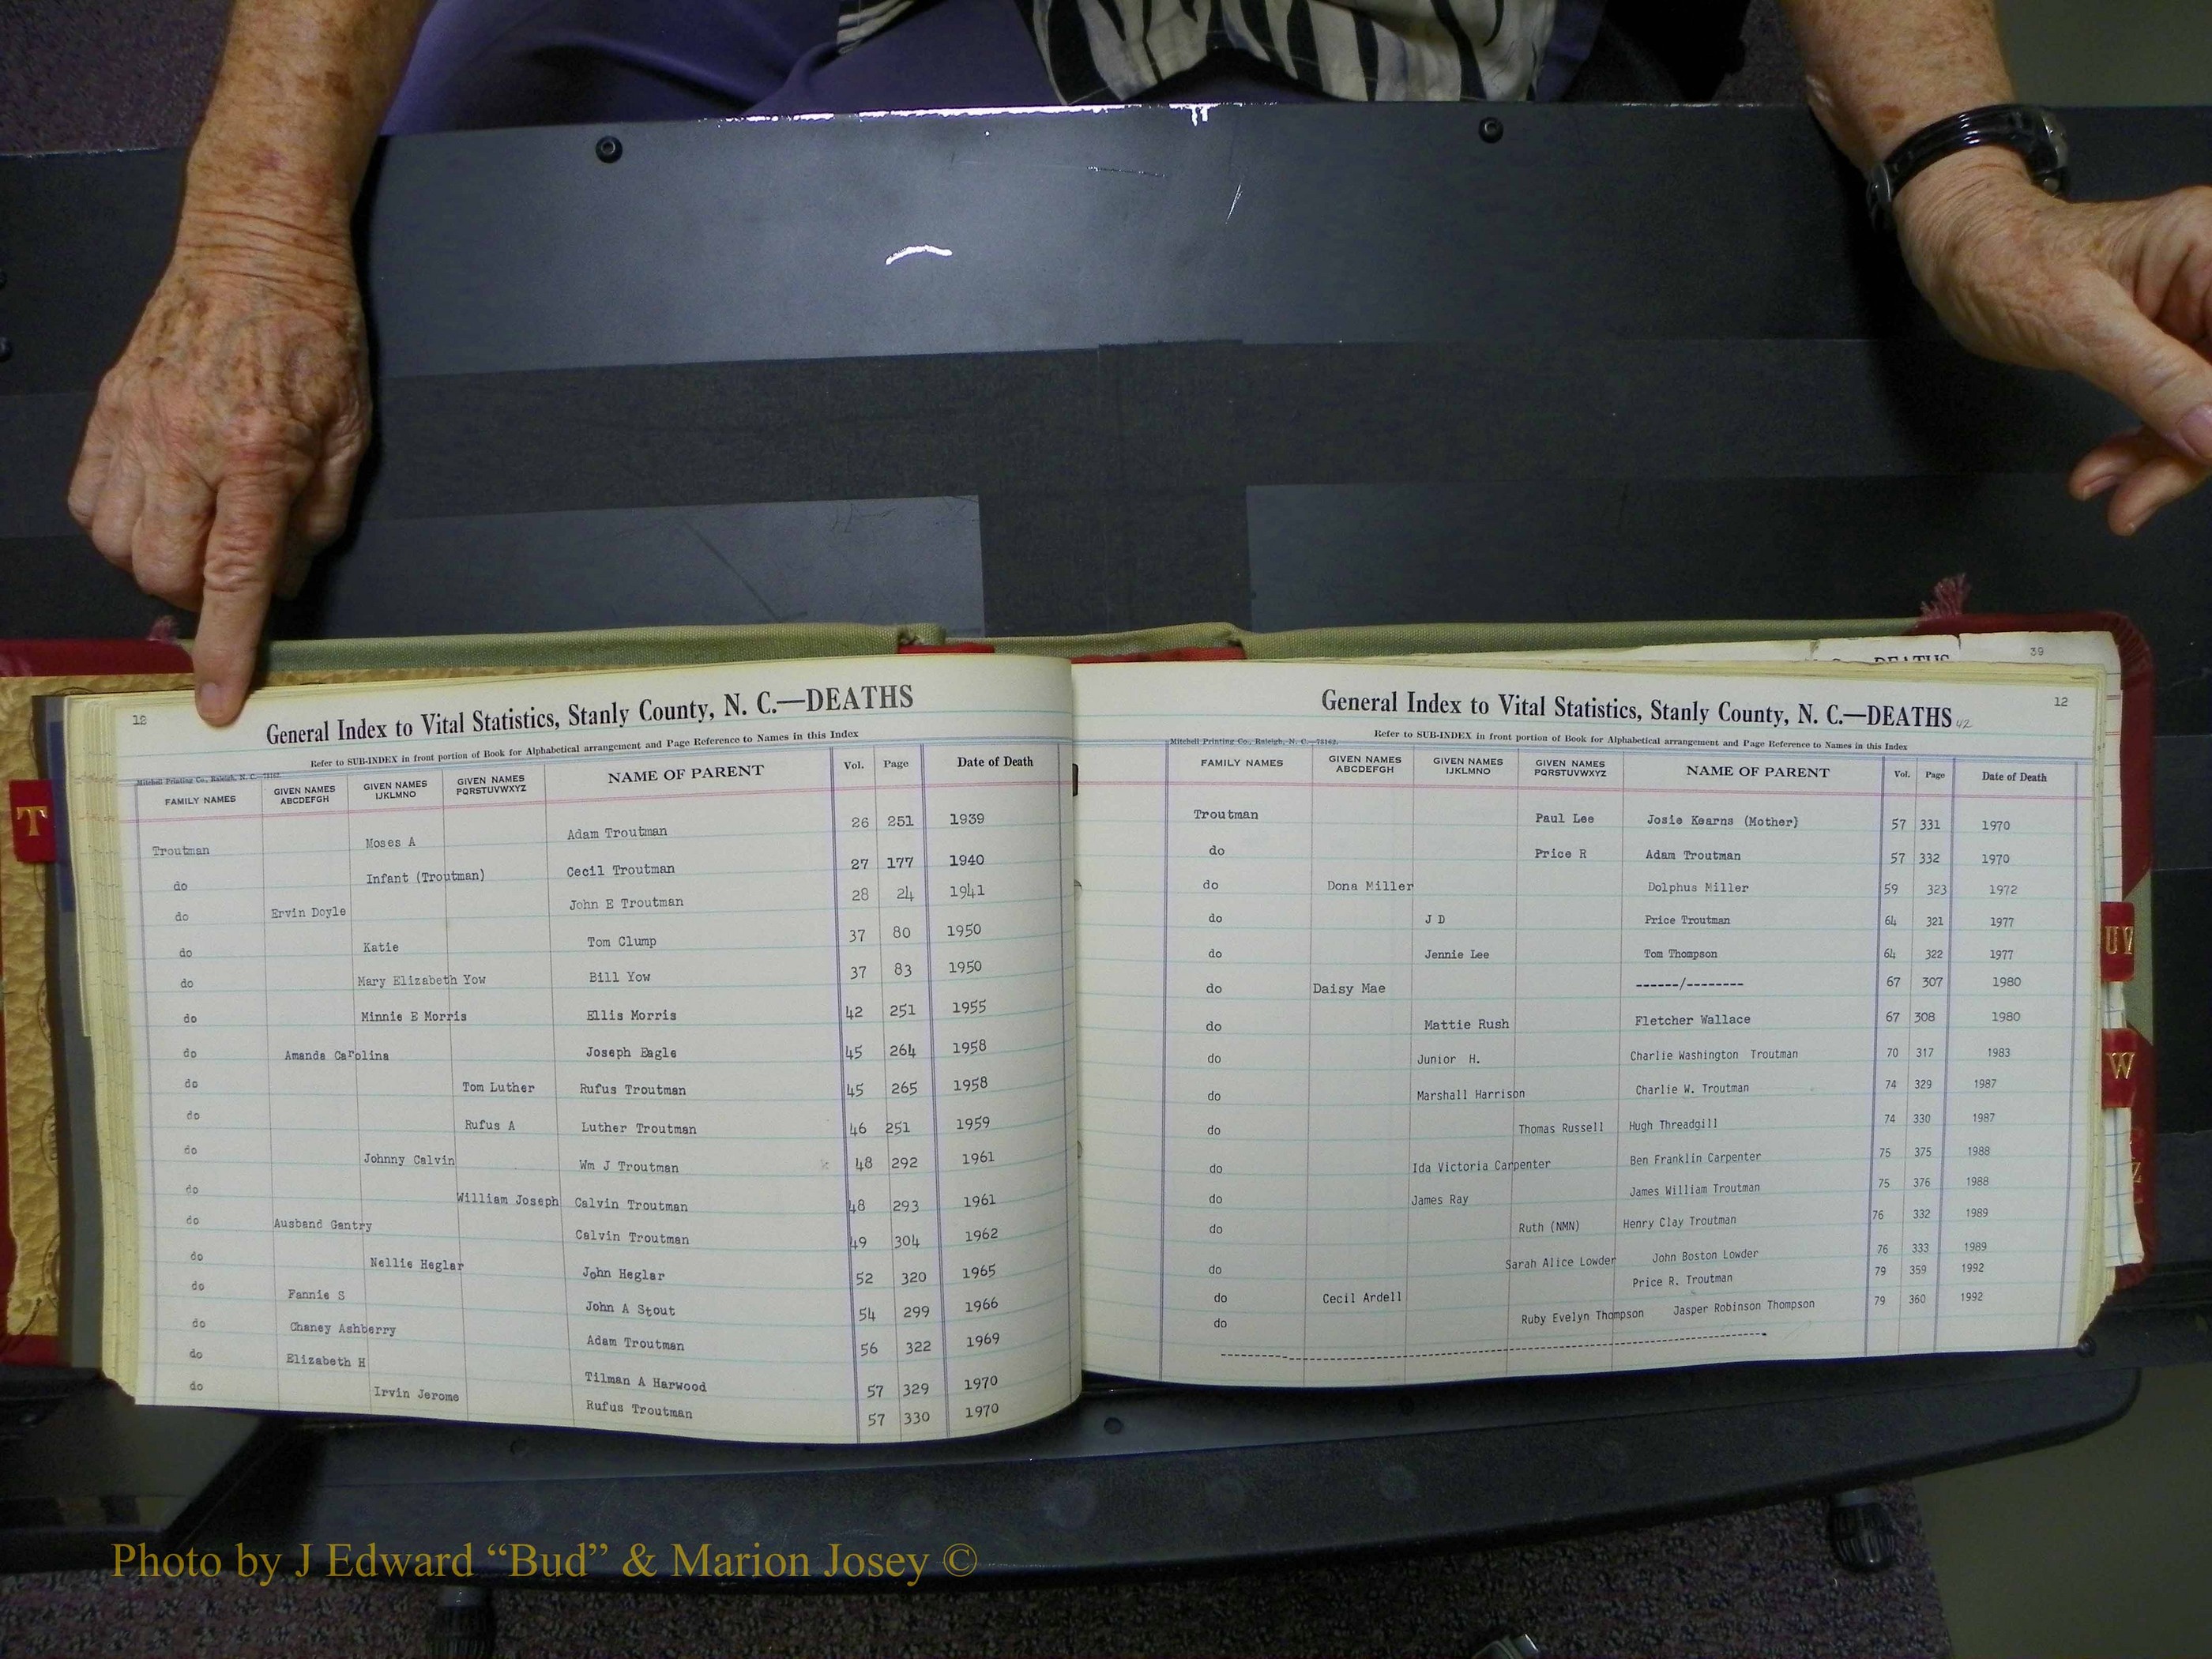 12
General Index to Vital Statistics, Stanly County, N. C.—DEATHS
Refer to SUB-INDEX in front portion of Book for Alphabetical arrangement and Page Reference to Names in this Index
Mitchell Printing Co., Raleigh, N. C.—75162.
FAMILY NAMES GIVEN NAMES ABCDEFGH GIVEN NAMES IJKLMNO GIVEN NAMES PQRSTUVWXYZ NAME OF PARENT Vol. Page Date of Death
Troutman Moses A Adam Troutman 26 251 1939
do Infant (Troutman) Cecil Troutman 27 177 1940
do Ervin Doyle John E Troutman 28 24 1941
do Katie Tom Clump 37 80 1950
do Mary Elizabeth Yow Bill Yow 37 83 1950
do Minnie E Morris Ellis Morris 42 251 1955
do Amanda Carolina Joseph Eagle 45 264 1958
do Tom Luther Rufus Troutman 45 265 1958
do Rufus A Luther Troutman 46 251 1959
do Johnny Calvin Wm J Troutman 48 292 1961
do William Joseph Calvin Troutman 48 293 1961
do Ausband Gantry Calvin Troutman 49 304 1962
do Nellie Heglar John Heglar 52 320 1965
do Fannie S John A Stout 54 299 1966
do Chaney Ashberry Adam Troutman 56 322 1969
do Elizabeth H Tilman A Harwood 57 329 1970
do Irvin Jerome Rufus Troutman 57 330 1970
T
39
DEATHS
12
General Index to Vital Statistics, Stanly County, N. C.—DEATHS 42
Refer to SUB-INDEX in front portion of Book for Alphabetical arrangement and Page Reference to Names in this Index
Mitchell Printing Co., Raleigh, N. C.—75162.
FAMILY NAMES GIVEN NAMES ABCDEFGH GIVEN NAMES IJKLMNO GIVEN NAMES PQRSTUVWXYZ NAME OF PARENT Vol. Page Date of Death
Troutman Paul Lee Josie Kearns (Mother) 57 331 1970
do Price R Adam Troutman 57 332 1970
do Dona Miller Dolphus Miller 59 323 1972
do J D Price Troutman 64 321 1977
do Jennie Lee Tom Thompson 64 322 1977
do Daisy Mae ------/-------- 67 307 1980
do Mattie Rush Fletcher Wallace 67 308 1980
do Junior H. Charlie Washington Troutman 70 317 1983
do Marshall Harrison Charlie W. Troutman 74 329 1987
do Thomas Russell Hugh Threadgill 74 330 1987
do Ida Victoria Carpenter Ben Franklin Carpenter 75 375 1988
do James Ray James William Troutman 75 376 1988
do Ruth (NMN) Henry Clay Troutman 76 332 1989
do Sarah Alice Lowder John Boston Lowder 76 333 1989
do Cecil Ardell Price R. Troutman 79 359 1992
do Ruby Evelyn Thompson Jasper Robinson Thompson 79 360 1992
UV
W
Z
Photo by J Edward “Bud” & Marion Josey ©